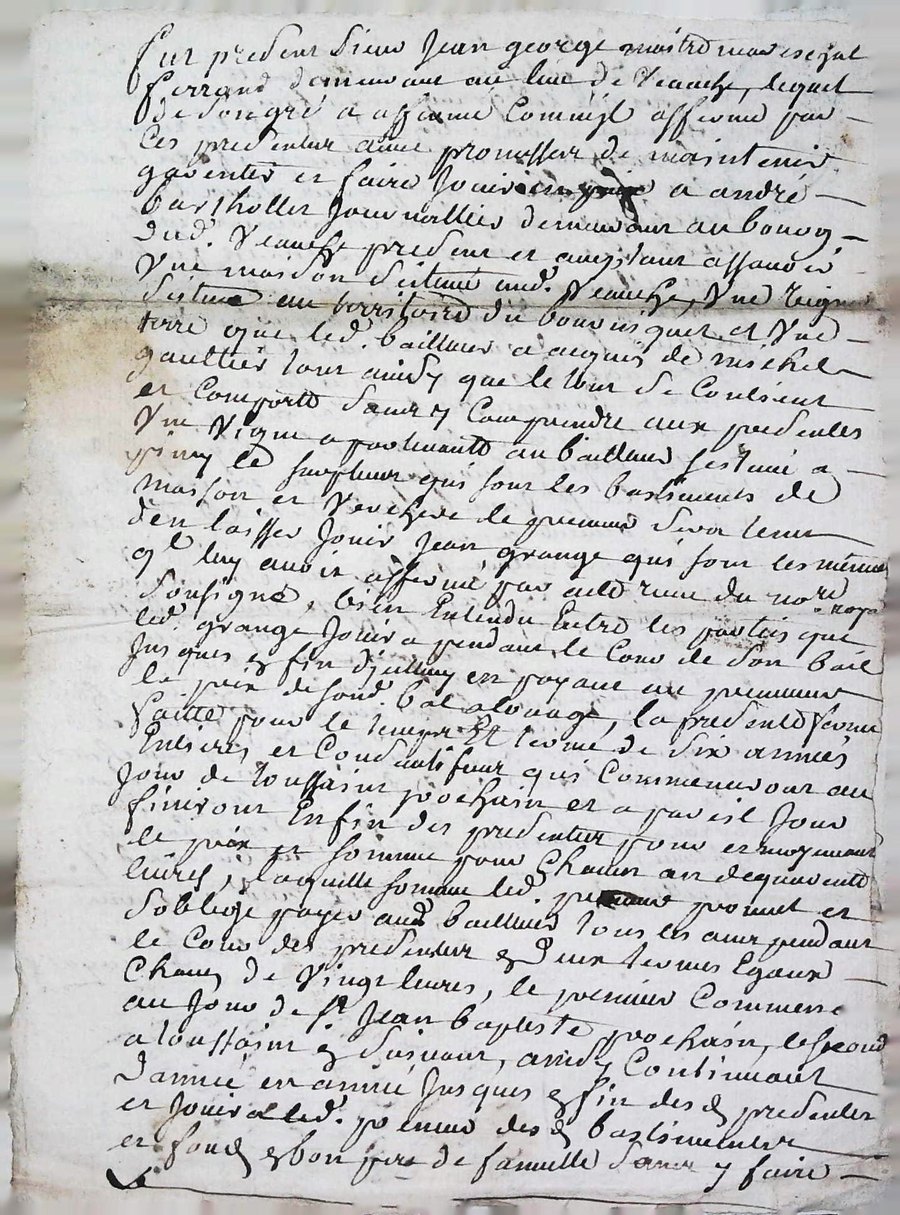 fut present Sieur Jean george maitre marechal
ferrand demeurant au lieu de Veauche, lequel
de son gré a affermé comme il afferme par
ces presentes avec promesse de maintenir
garentir et faire Jouir a andré
bartholler Journallier demeurant au bourg
dud. Veauche present et acceptant assavoir
Une maison scituée aud. Veauche, Une
scituée au territoire du et Une
terre que led. bailleur a acquis de michel
gaultier tout ainsy que le tout se contient
et comporte sans y comprendre aux presentes
Une Vigne apartenante au bailleur scituée a
le surplus qui sont les bastiments de
maison et Verchere le preneur sera tenu
d'en laisser Jouir Jean grange qui sont les mêmes
ql luy avoit affermé par acte receu du nore
soussigné, bien Entendu Entre les parties que
led. grange Jouira pendant le cour de son bail
Jusques en payant au preneur
le prix de sond. bail a louage, la presente ferme
faitte pour le temps Et terme de six années
Entieres et Consecutifves qui commenceront au
Jour de toussaint prochain et a pareil Jour
finiront Enfin des presentes pour et moyenant
le prix et somme pour chacun an de quarente
livres, laquelle somme led. preneur promet et
s'oblige payer aud. bailleur tous les ans pendant
le cour des presentes en deux termes Egaux
chacun de Vingt livres, le premier Commence
au Jour de st Jean baptiste prochain, le second
a toussaint en suivant, ainsy Continuant
d'année en année Jusques en fin desd. presentes
et Jouira led. preneur desd. bastiments
et fond en bon pere de famille sans y faire